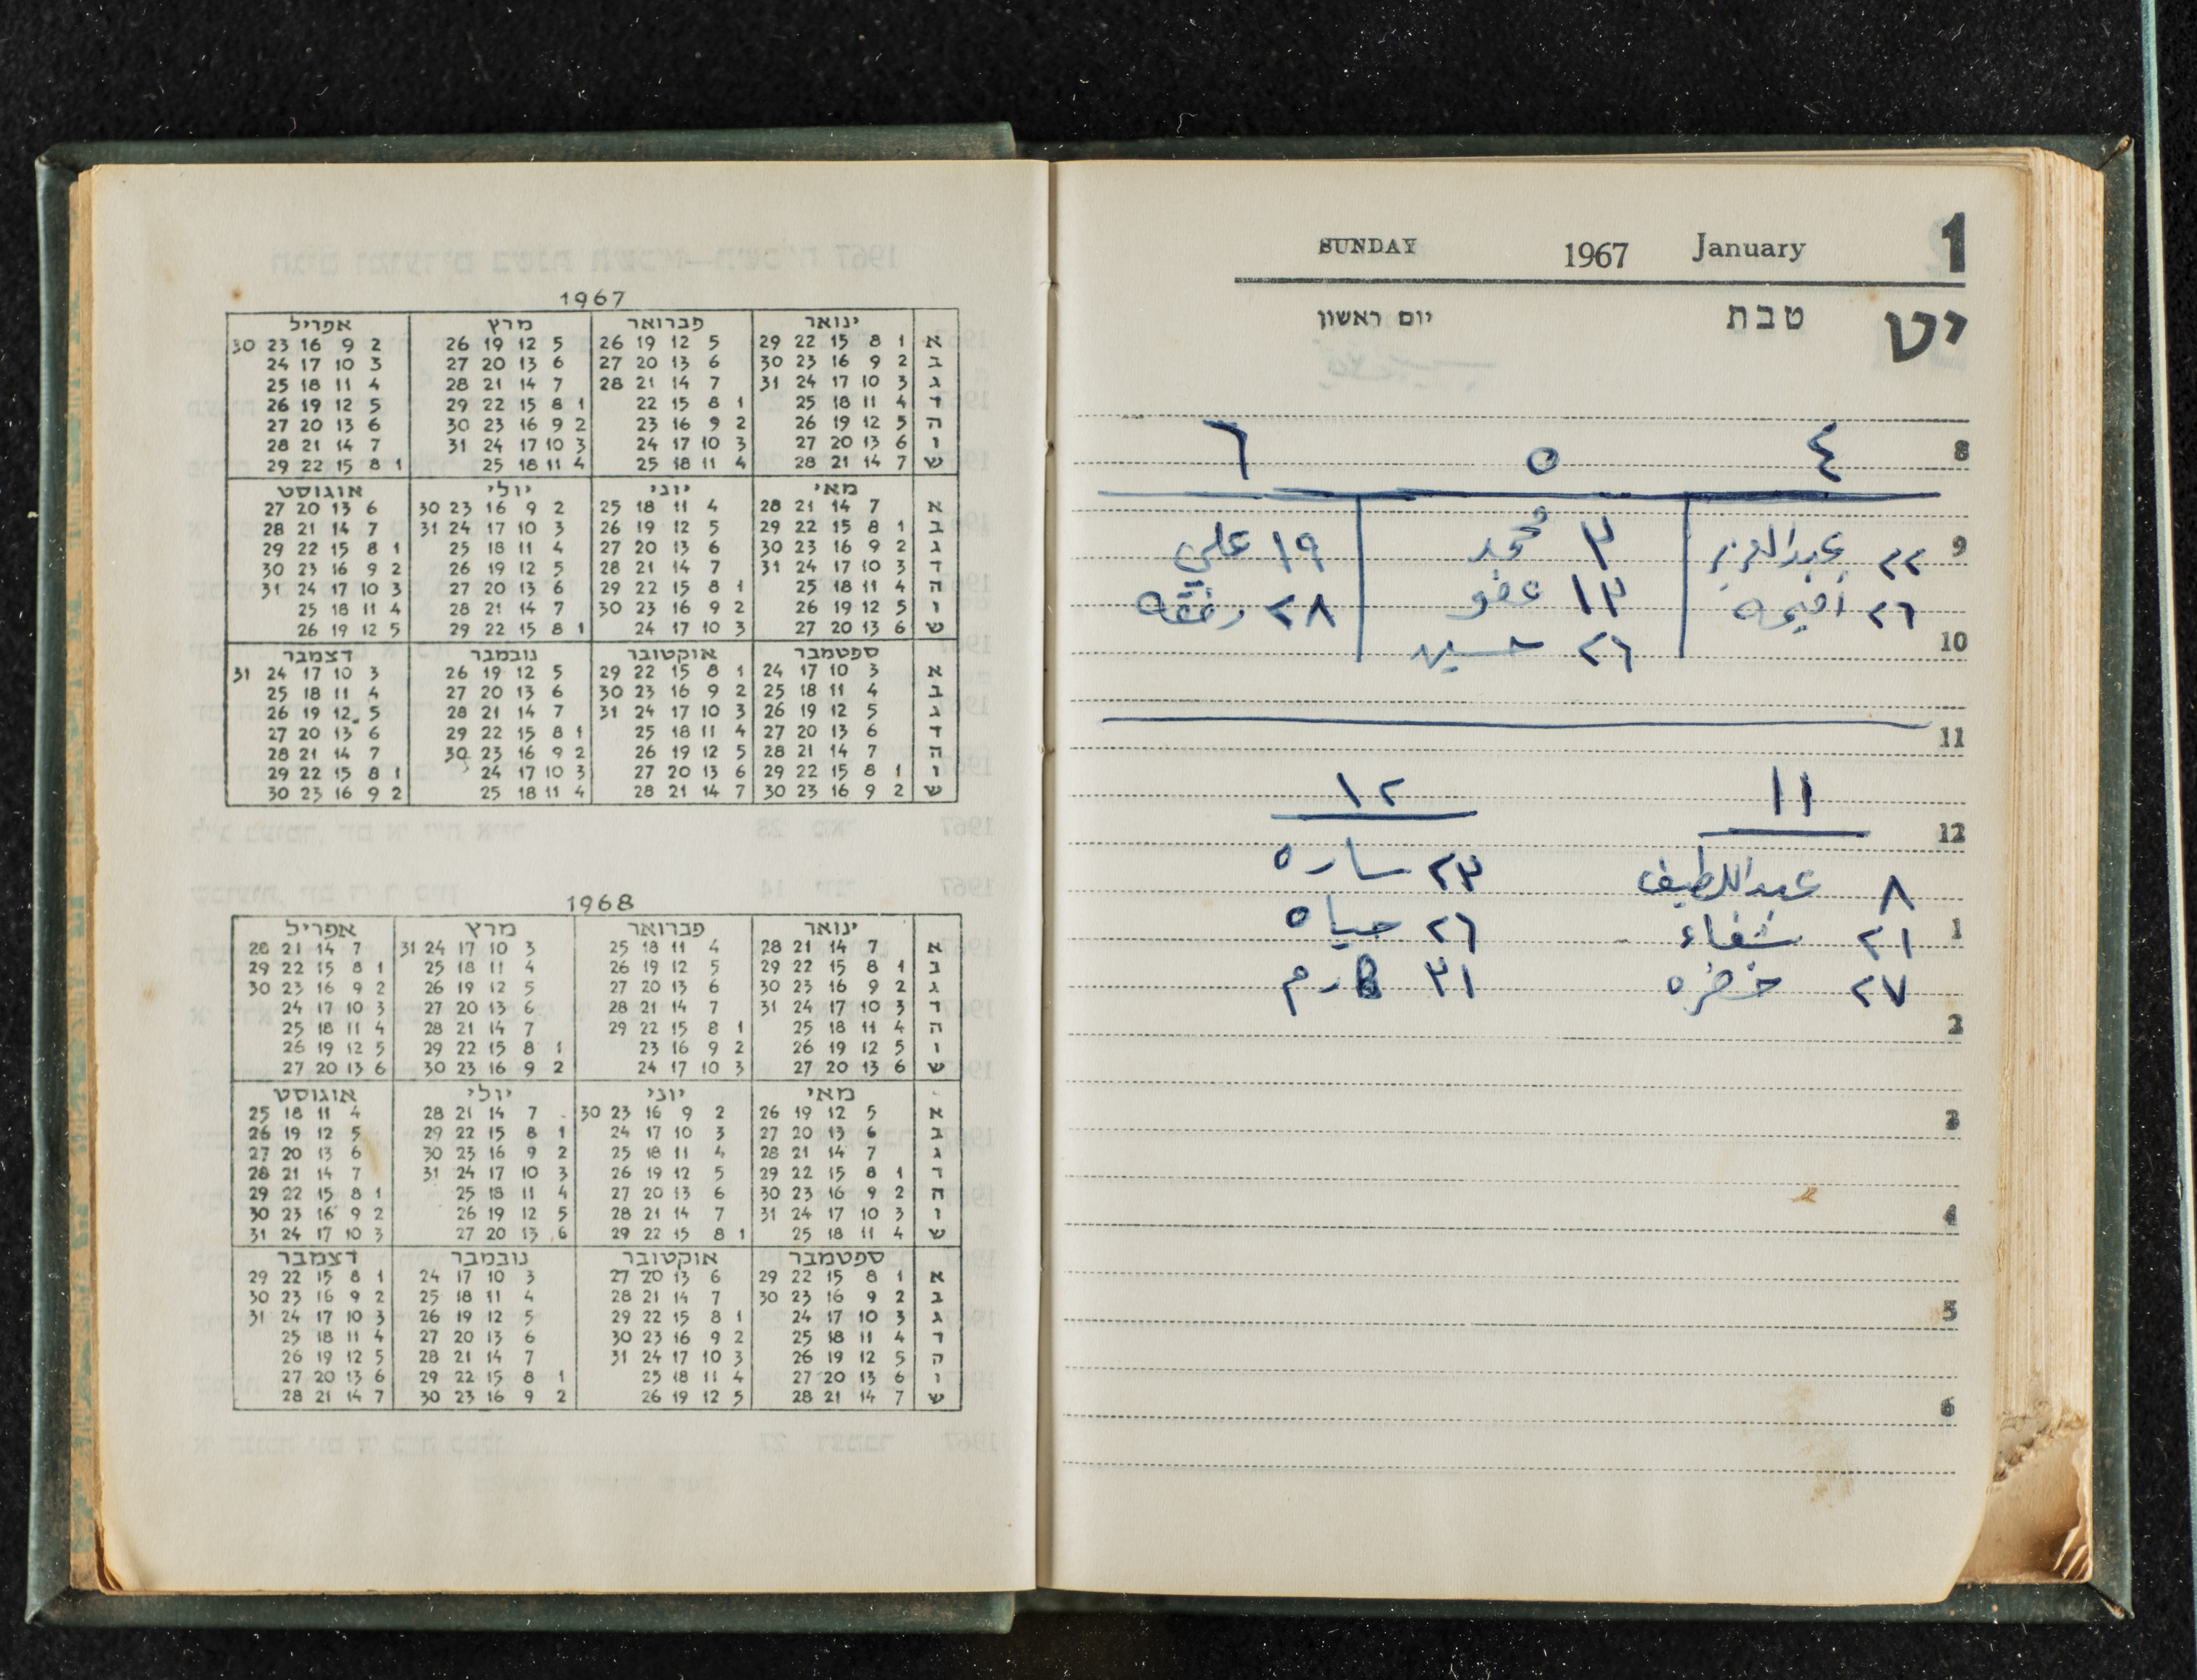 1967
ינואר פברואר מרץ אפריל
א 1 8 15 22 29 5 12 19 26 5 12 19 26 2 9 16 23 30
ב 2 9 16 23 30 6 13 20 27 6 13 20 27 3 10 17 24
ג 3 10 17 24 31 7 14 21 28 7 14 21 28 4 11 18 25
ד 4 11 18 25 1 8 15 22 1 8 15 22 29 5 12 19 26
ה 5 12 19 26 2 9 16 23 2 9 16 23 30 6 13 20 27
ו 6 13 20 27 3 10 17 24 3 10 17 24 31 7 14 21 28
ש 7 14 21 28 4 11 18 25 4 11 18 25 1 8 15 22 29
מאי יוני יולי אוגוסט
א 7 14 21 28 4 11 18 25 2 9 16 23 30 6 13 20 27
ב 1 8 15 22 29 5 12 19 26 3 10 17 24 31 7 14 21 28
ג 2 9 16 23 30 6 13 20 27 4 11 18 25 1 8 15 22 29
ד 3 10 17 24 31 7 14 21 28 5 12 19 26 2 9 16 23 30
ה 4 11 18 25 1 8 15 22 29 6 13 20 27 3 10 17 24 31
ו 5 12 19 26 2 9 16 23 30 7 14 21 28 4 11 18 25
ש 6 13 20 27 3 10 17 24 1 8 15 22 29 5 12 19 26
ספטמבר אוקטובר נובמבר דצמבר
א 3 10 17 24 1 8 15 22 29 5 12 19 26 3 10 17 24 31
ב 4 11 18 25 2 9 16 23 30 6 13 20 27 4 11 18 25
ג 5 12 19 26 3 10 17 24 31 7 14 21 28 5 12 19 26
ד 6 13 20 27 4 11 18 25 1 8 15 22 29 6 13 20 27
ה 7 14 21 28 5 12 19 26 2 9 16 23 30 7 14 21 28
ו 1 8 15 22 29 6 13 20 27 3 10 17 24 1 8 15 22 29
ש 2 9 16 23 30 7 14 21 28 4 11 18 25 2 9 16 23 30
1968
ינואר פברואר מרץ אפריל
א 7 14 21 28 4 11 18 25 3 10 17 24 31 7 14 21 28
ב 1 8 15 22 29 5 12 19 26 4 11 18 25 1 8 15 22 29
ג 2 9 16 23 30 6 13 20 27 5 12 19 26 2 9 16 23 30
ד 3 10 17 24 31 7 14 21 28 6 13 20 27 3 10 17 24
ה 4 11 18 25 1 8 15 22 29 7 14 21 28 4 11 18 25
ו 5 12 19 26 2 9 16 23 1 8 15 22 29 5 12 19 26
ש 6 13 20 27 3 10 17 24 2 9 16 23 30 6 13 20 27
מאי יוני יולי אוגוסט
א 5 12 19 26 2 9 16 23 30 7 14 21 28 4 11 18 25
ב 6 13 20 27 3 10 17 24 1 8 15 22 29 5 12 19 26
ג 7 14 21 28 4 11 18 25 2 9 16 23 30 6 13 20 27
ד 1 8 15 22 29 5 12 19 26 3 10 17 24 31 7 14 21 28
ה 2 9 16 23 30 6 13 20 27 4 11 18 25 1 8 15 22 29
ו 3 10 17 24 31 7 14 21 28 5 12 19 26 2 9 16 23 30
ש 4 11 18 25 1 8 15 22 29 6 13 20 27 3 10 17 24 31
ספטמבר אוקטובר נובמבר דצמבר
א 1 8 15 22 29 6 13 20 27 3 10 17 24 1 8 15 22 29
ב 2 9 16 23 30 7 14 21 28 4 11 18 25 2 9 16 23 30
ג 3 10 17 24 1 8 15 22 29 5 12 19 26 3 10 17 24 31
ד 4 11 18 25 2 9 16 23 30 6 13 20 27 4 11 18 25
ה 5 12 19 26 3 10 17 24 31 7 14 21 28 5 12 19 26
ו 6 13 20 27 4 11 18 25 1 8 15 22 29 6 13 20 27
ש 7 14 21 28 5 12 19 26 2 9 16 23 30 7 14 21 28
SUNDAY 1967 January 1
יט טבת יום ראשון
8
٤ ٥ ٦
9
٢٢ عبدالعزيز ٣ محمد ١٩ علي
٢٦ ١٣ عفو ٢٨ رفقه
10
٢٦ حسين
11
١١ ١٢
12
٨ عبداللطيف ٢٣ ساره
1
٢١ شفاء ٢٦ حياه
٢٧ خضره ٣١
2
3
4
5
6